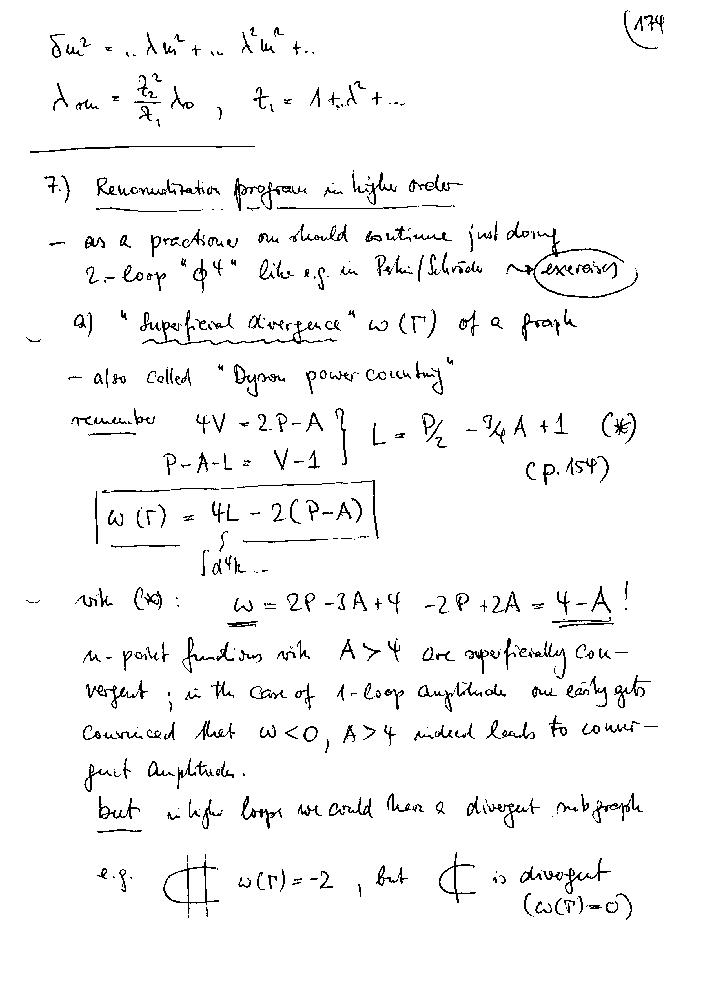 174
δm² = .. λm² + .. λ²m² + ..
λ_ren = Z₂²/Z₁ λ₀ , Z₁ = 1 + .. λ² + ...
7.) Renormalization program in higher order
– as a practioner one should continue just doing
2-loop "ϕ⁴" like e.g. in Peskin/Schröder ⇝ exercises
a) "Superficial divergence" ω(Γ) of a graph
– also called "Dyson power counting"
remember 4V = 2P – A } L = P/2 – 3/4 A + 1 (*)
P – A – L = V – 1 (p. 154)
ω(Γ) = 4L – 2(P – A)
∫d⁴k ...
with (*) : ω = 2P – 3A + 4 – 2P + 2A = 4 – A !
n-point functions with A > 4 are superficially con-
vergent ; in the case of 1-loop amplitude one easily gets
convinced that ω < 0, A > 4 indeed leads to conver-
gent amplitudes.
but in higher loops we could have a divergent subgraph
e.g. ω(Γ) = –2 , but is divergent
(ω(Γ) = 0)